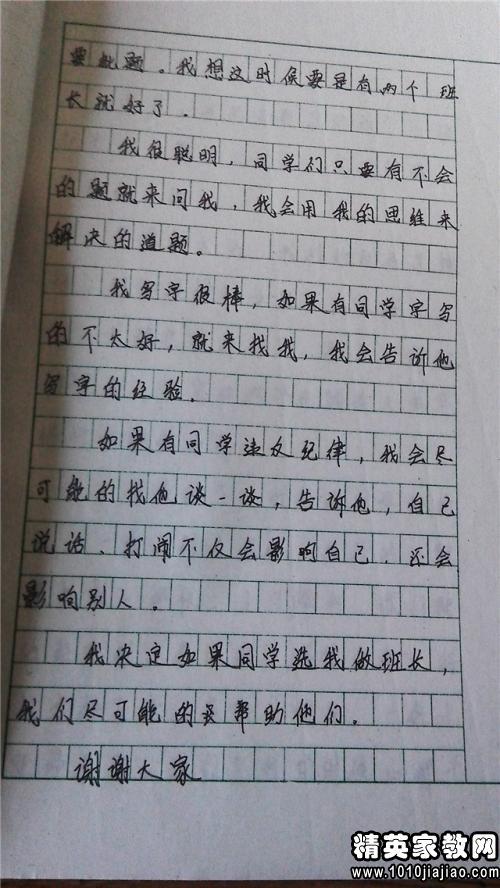 要批题。我想这时候要是有两个班
长就好了.
我很聪明,同学们只要有不会
的题就来问我,我会用我的思维来
解决的道题。
我写字很棒,如果有同学字写
的不太好,就来找我,我会告诉他
写字的经验.
如果有同学违反纪律,我会尽
可能的找他谈一谈,告诉他,自己
说话、打闹不仅会影响自己,还会
影响别人。
我决定如果同学选我做班长,
我们尽可能的去帮助他们.
谢谢大家
精英家教网
www.1010jiajiao.com